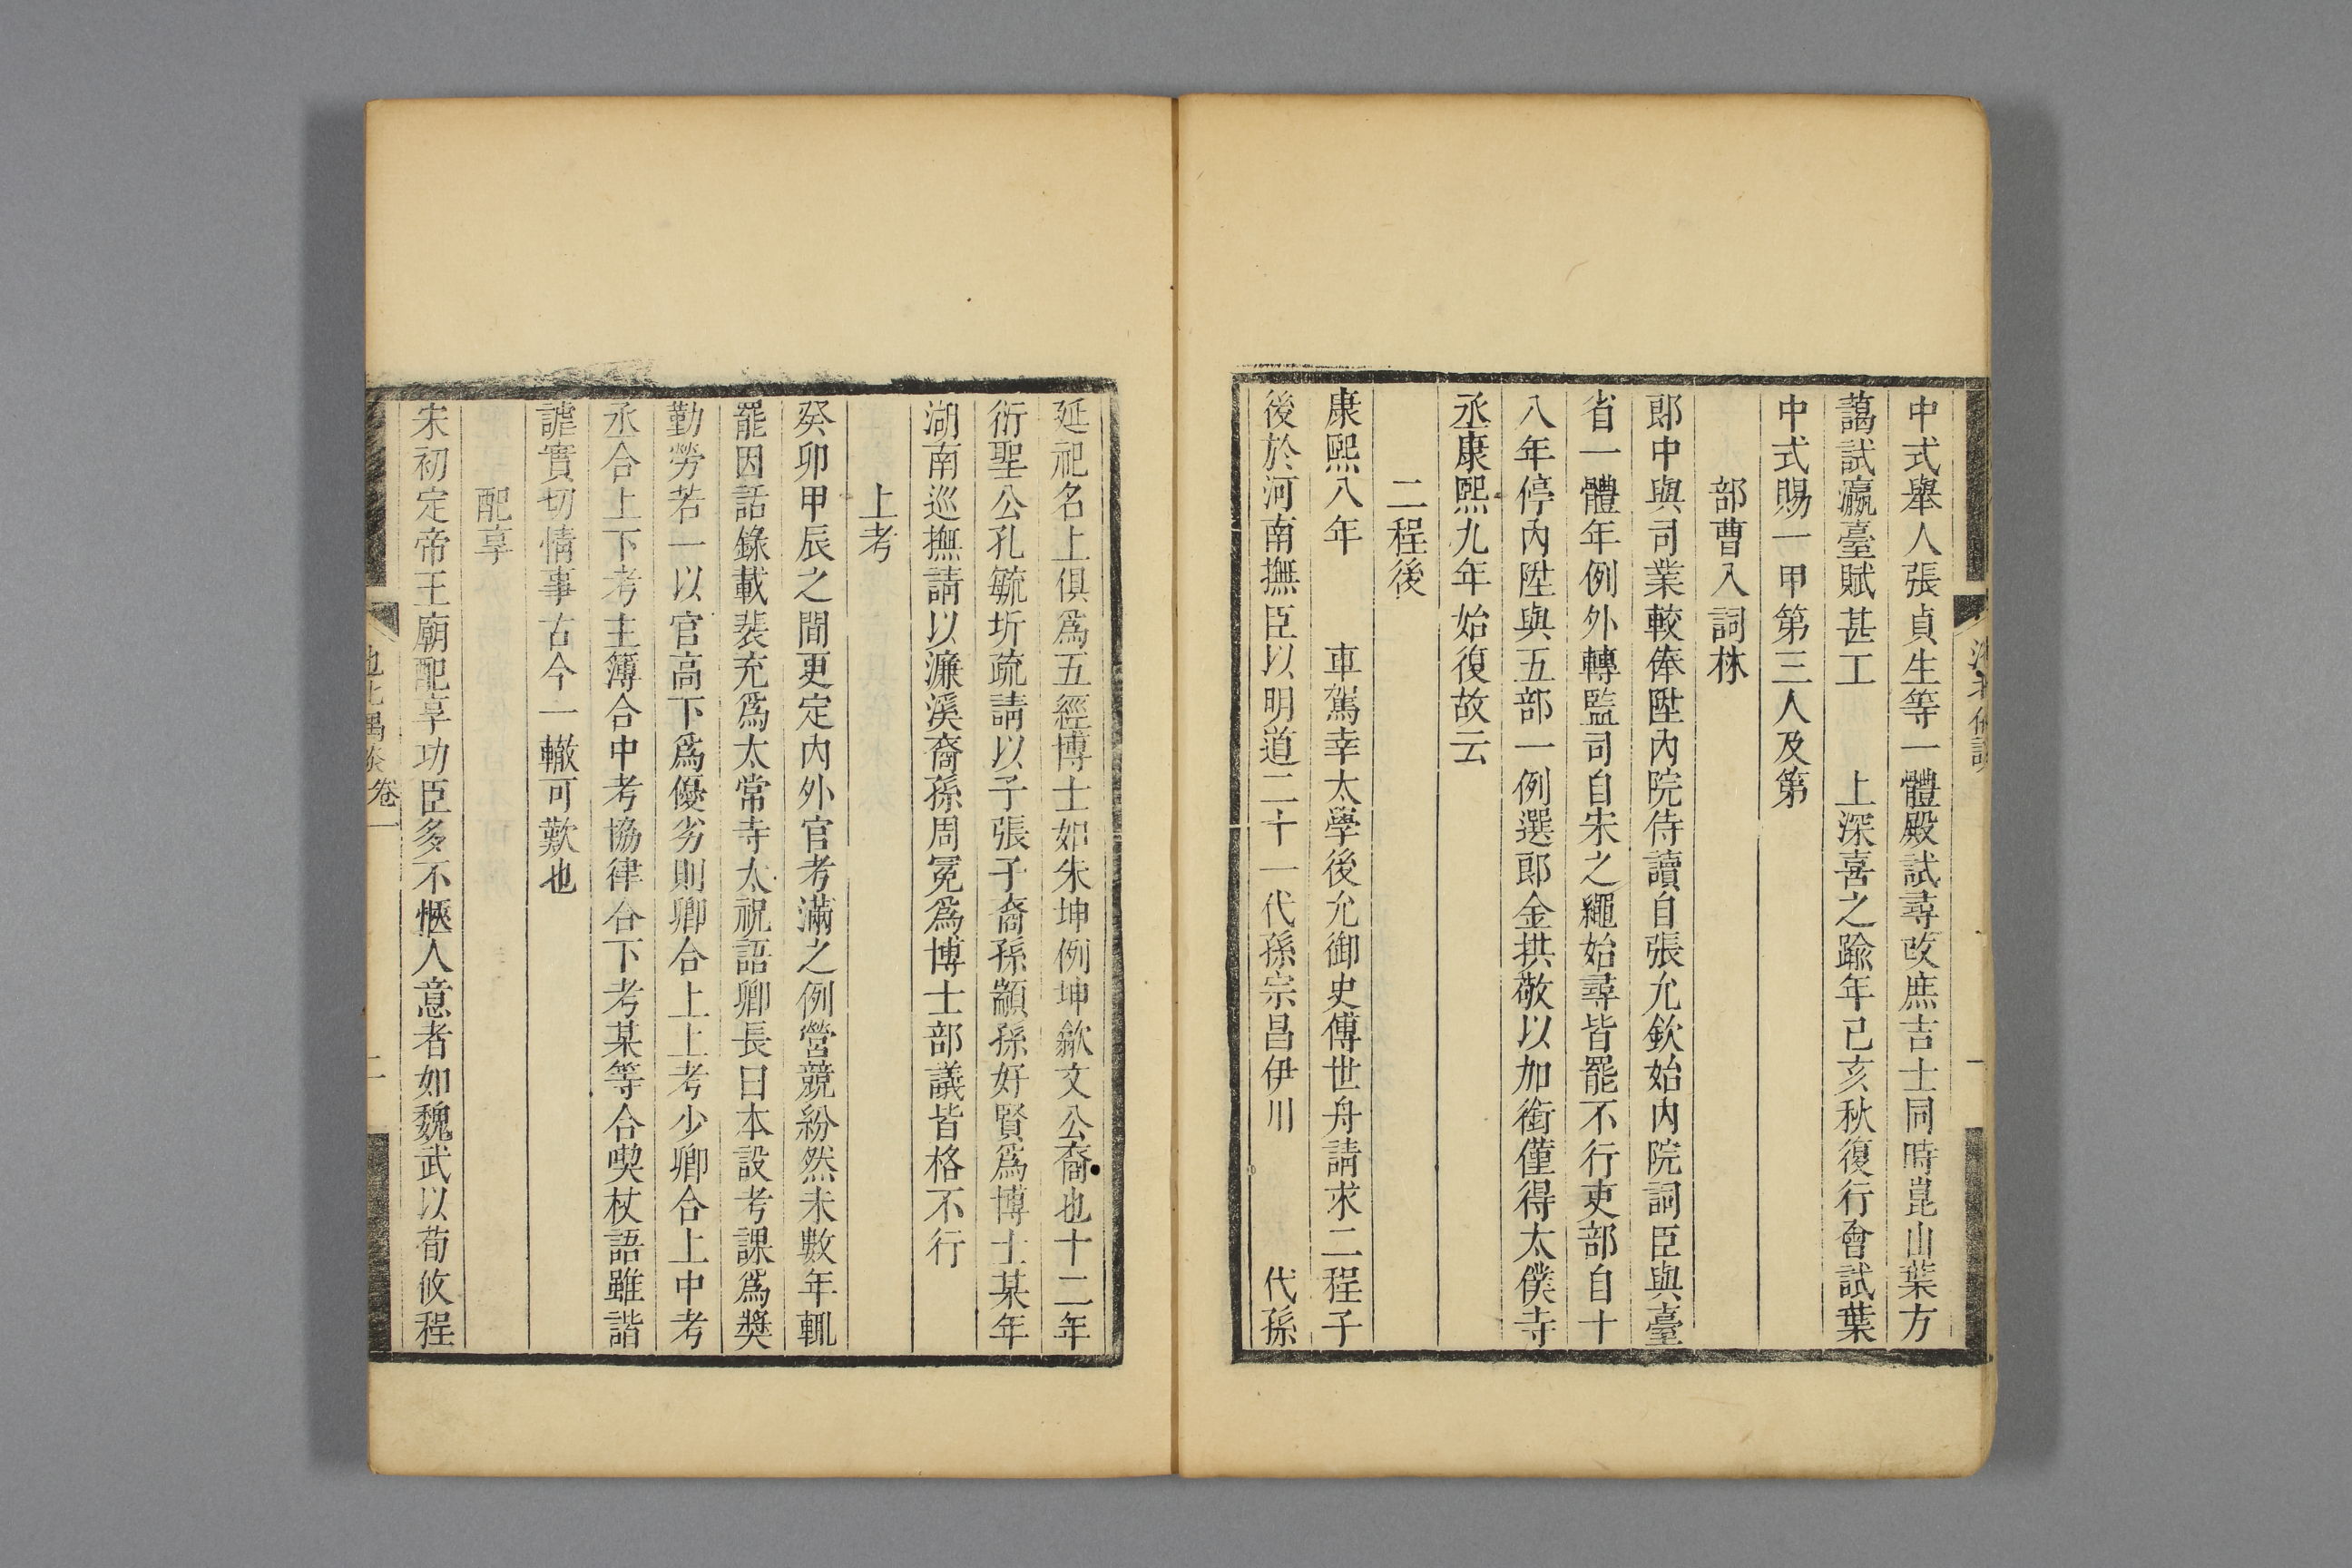 中式舉人張貞生等一體殿試尋改庶吉士同時崑山葉方
藹試瀛臺賦甚工 上深喜之踰年己亥秋復行會試葉
中式賜一甲第三人及第
部曹入詞林
郎中與司業較俸陞內院侍讀自張允欽始內院詞臣與臺
省一體年例外轉監司自朱之繩始尋皆罷不行吏部自十
八年停內陞與五部一例選郎金拱敬以加銜僅得太僕寺
丞康熙九年始復故云
二程後
康熙八年 車駕幸太學後允御史傅世舟請求二程子
後於河南撫臣以明道二十一代孫宗昌伊川 代孫
延祀名上俱爲五經博士如朱坤例坤歙文公裔也十二年
衍聖公孔毓圻疏請以子張子裔孫顓孫好賢爲博士某年
湖南巡撫請以濂溪裔孫周冕爲博士部議皆格不行
上考
癸卯甲辰之間更定內外官考滿之例營競紛然未數年輒
罷因話錄載裴充爲太常寺太祝語卿長曰本設考課爲獎
勤勞若一以官高下爲優劣則卿合上上考少卿合上中考
丞合上下考主簿合中考協律合下考某等合喫杖語雖諧
謔實切情事古今一轍可歎也
配享
宋初定帝王廟配享功臣多不愜人意者如魏武以荀攸程
池北偶談卷一
二